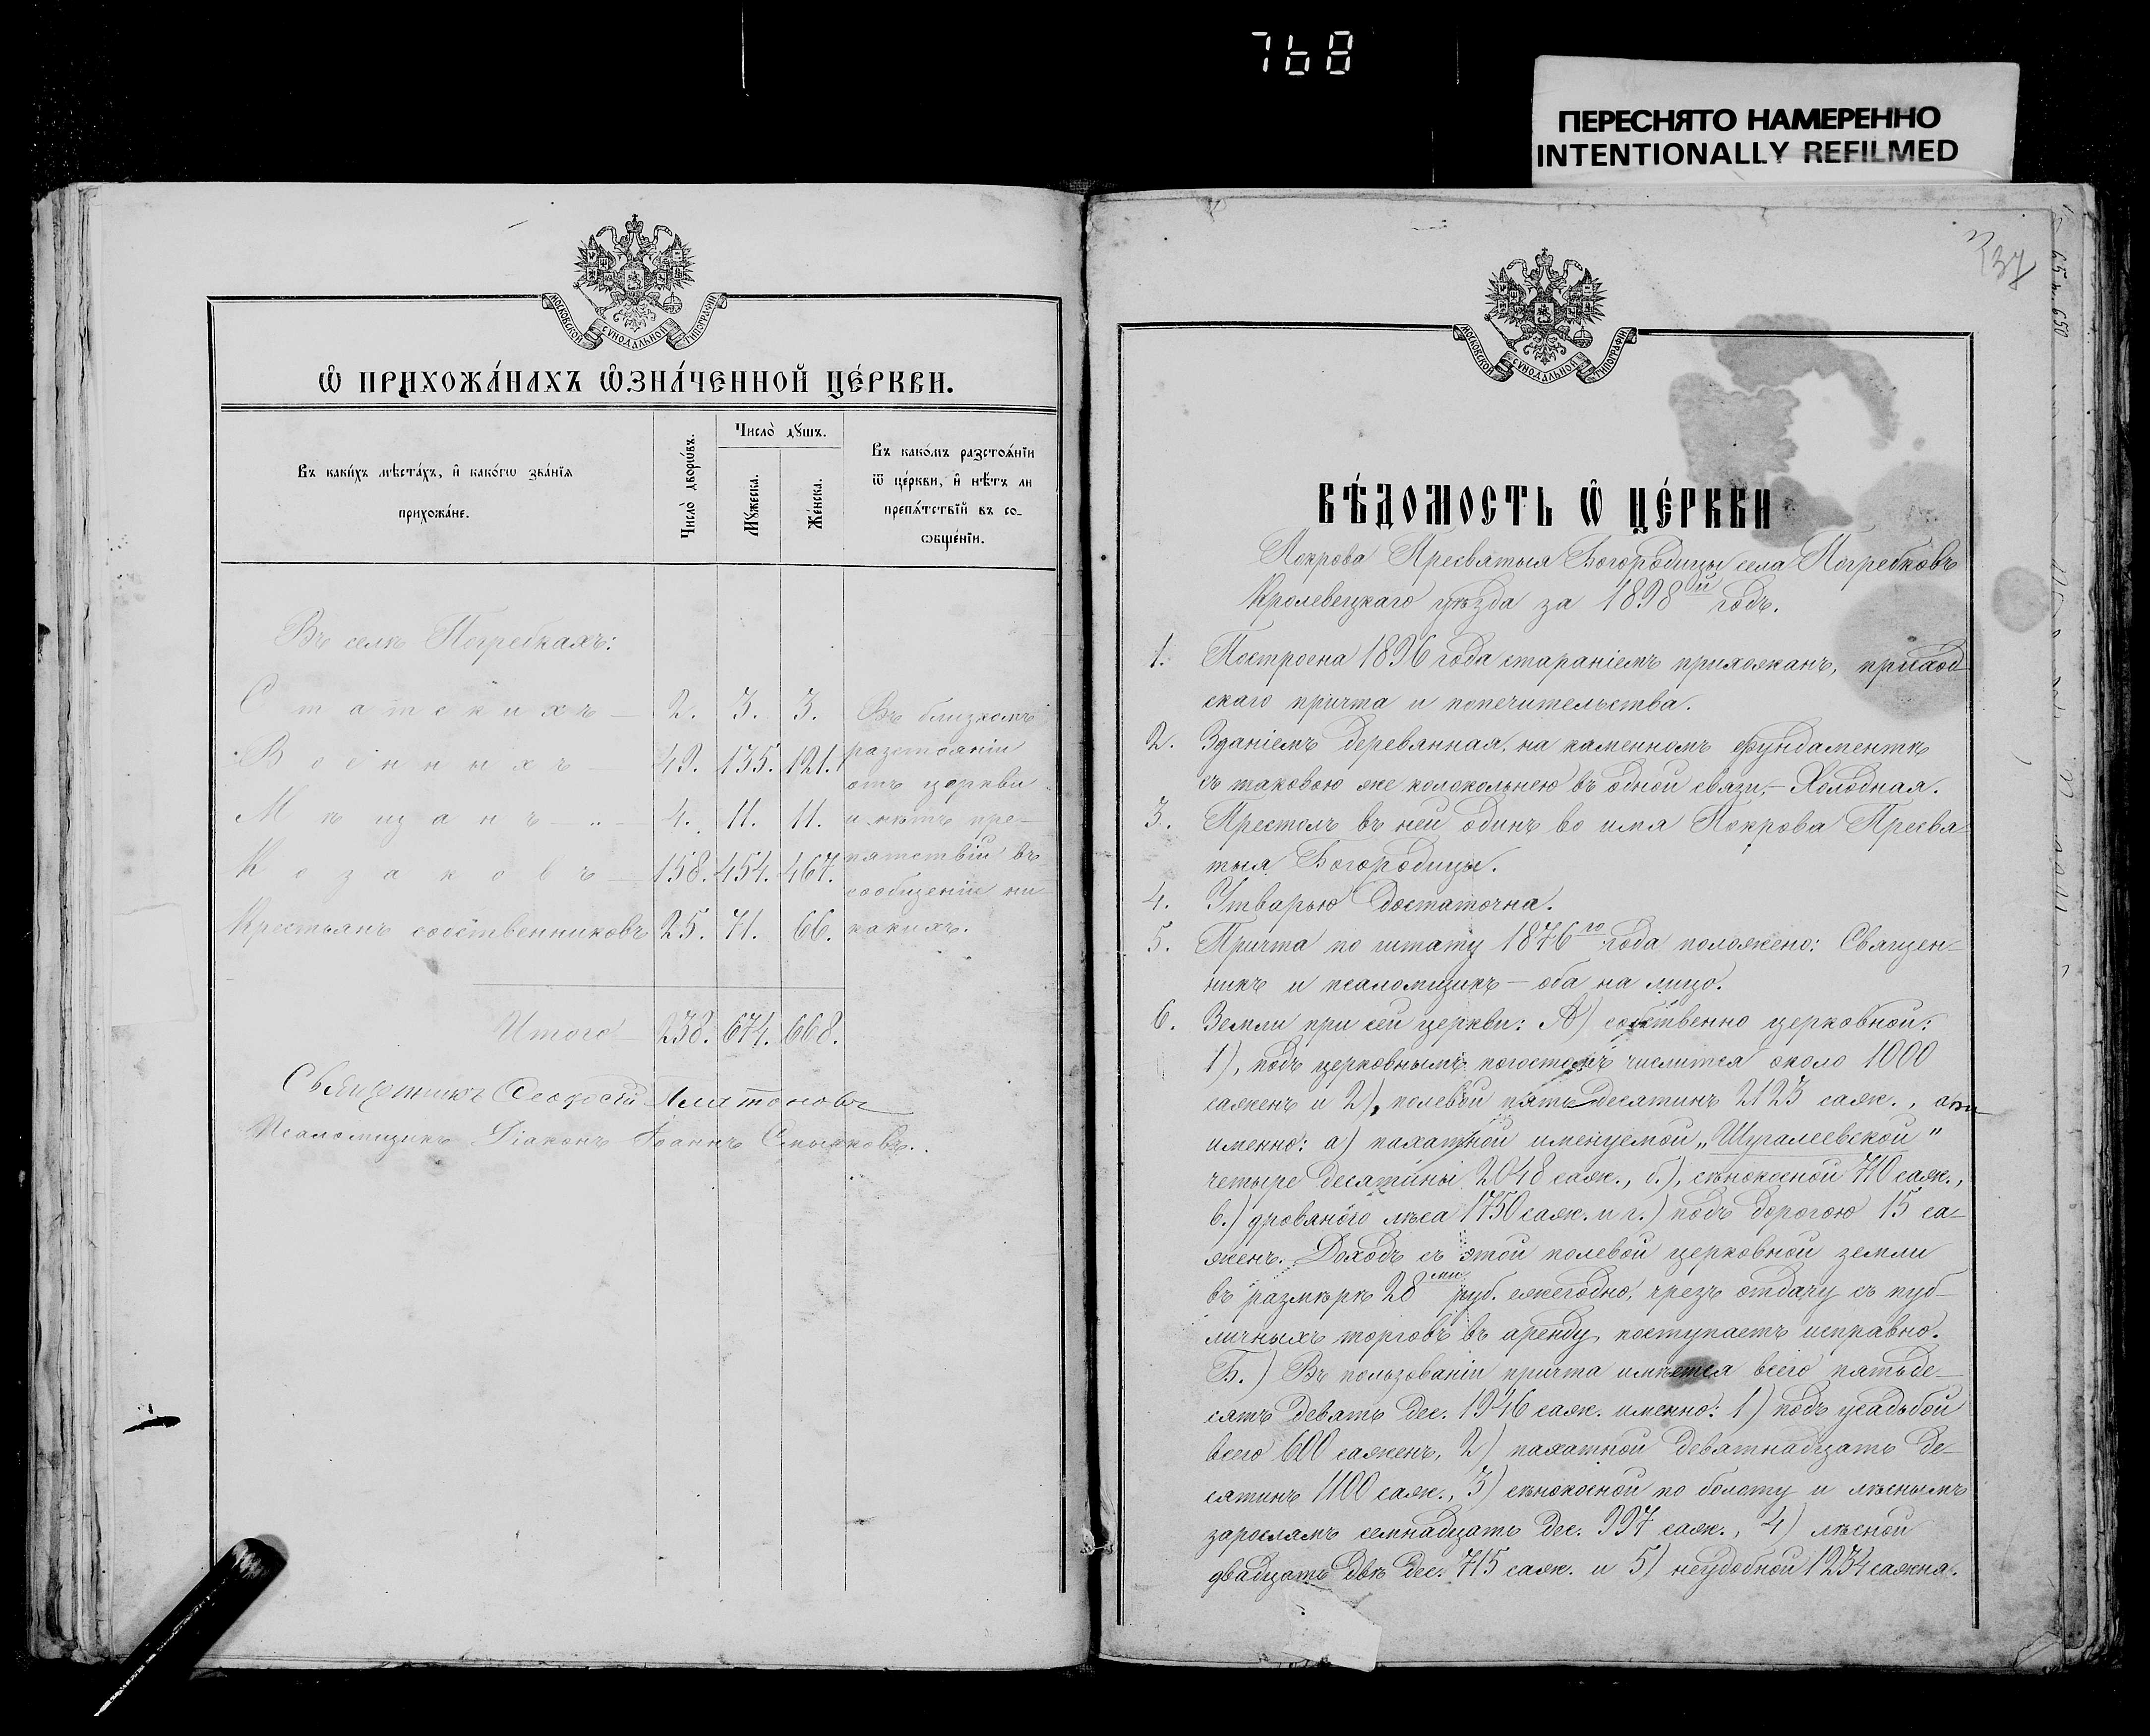 768
ПЕРЕСНЯТО НАМЕРЕННО
INTENTIONALLY REFILMED
МОСКОВСКОЙ СѴНОДАЛЬНОЙ ТИПОГРАФІИ
Ѽ ПРИХОЖА́НАХЪ Ѽ́ЗНА́ЧЕННОЙ ЦЕ́РКВИ.
Въ каки́хъ мѣста́хъ, и҆ како́гѡ зва́нїѧ
прихожа́не.
Число̀ дворѡ́въ.
Число̀ дꙋ́шъ.
Мꙋ́жеска.
Же́нска.
Въ како́мъ разстоѧ́нїи
ѿ це́ркви, и҆ нѣ́тъ ли
препѧ́тствїй въ со-
ѻбще́нїи.
Въ селѣ Погребкахъ:
Статскихъ — 2. 3. 3.
Военныхъ — 49. 135. 121.
Мѣщанъ — „ — 4. 11. 11.
Козаковъ — 158. 454. 467.
Крестьянъ собственниковъ 25. 71. 66.
Въ близкомъ
разстояніи
отъ церкви
и нѣтъ пре-
пятствій въ
сообщеніи ни
какихъ.
Итого 238. 674. 668.
Священникъ Ѳеодосій Платоновъ
Псаломщикъ Діаконъ Іоаннъ
337
МОСКОВСКОЙ СѴНОДАЛЬНОЙ ТИПОГРАФІИ
ВѢ́ДОМОСТЬ Ѽ ЦЕ́РКВИ
Покрова Пресвятыя Богородицы села Погребковъ
Кролевецкаго уѣзда за 1898ой годъ.
1. Построена 1896 года стараніемъ прихожанъ, приход-
скаго причта и попечительства.
2. Зданіемъ деревянная, на каменномъ фундаментѣ
съ таковою же колокольнею въ одной связи, — Холодная.
3. Престолъ въ ней одинъ во имя Покрова Пресвя-
тыя Богородицы.
4. Утварью достаточна.
5. Причта по штату 1876го года положено: Священ-
никъ и псаломщикъ — оба на лицо.
6. Земли при сей церкви: А) собственно церковной:
1), подъ церковнымъ погостомъ числится около 1000
сажень и 2), полевой пять десятинъ 2123 саж., а
именно: а) пахатной именуемой „Шугалеевской"
четыре десятины 2048 саж., б.), сѣнокосной 710 саж.,
в.) дровяного лѣса 1750 саж. и г.) подъ дорогою 15 са-
жень. Доходъ съ этой полевой церковной земли
въ размѣрѣ 28ми руб. ежегодно, чрезъ отдачу съ пуб-
личныхъ торговъ въ аренду, поступаетъ исправно.
Б.) Въ пользованіи причта имѣется всего пятьде-
сятъ девять дес. 1946 саж. именно: 1) подъ усадьбой
всего 600 сажень, 2) пахатной девятнадцать де-
сятинъ 1100 саж., 3) сѣнокосной по болоту и лѣснымъ
зарослямъ семнадцать дес. 997 саж., 4) лѣсной
двадцать двѣ дес. 715 саж. и 5) неудобной 1234 сажня.